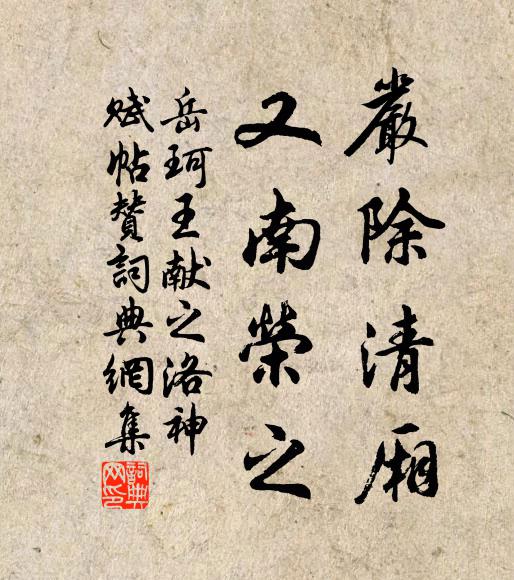 嚴除清厢
又南榮之
岳珂王献之洛神
賦帖贊詞典網集
詞典网印